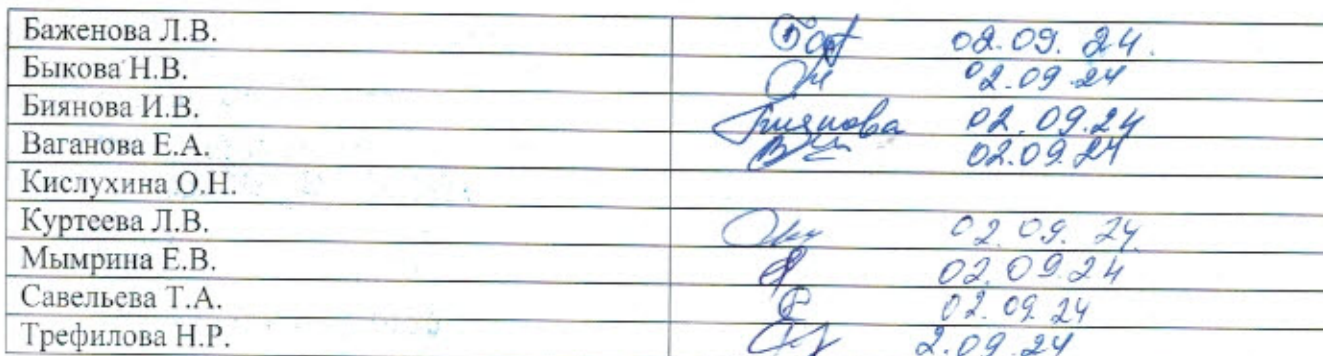 Баженова Л.В. 02.09.24.
Быкова Н.В. 02.09.24
Биянова И.В. Биянова 02.09.24
Ваганова Е.А. 02.09.24
Кислухина О.Н.
Куртеева Л.В. 02.09.24.
Мымрина Е.В. 02.09.24
Савельева Т.А. 02.09.24
Трефилова Н.Р. 2.09.24